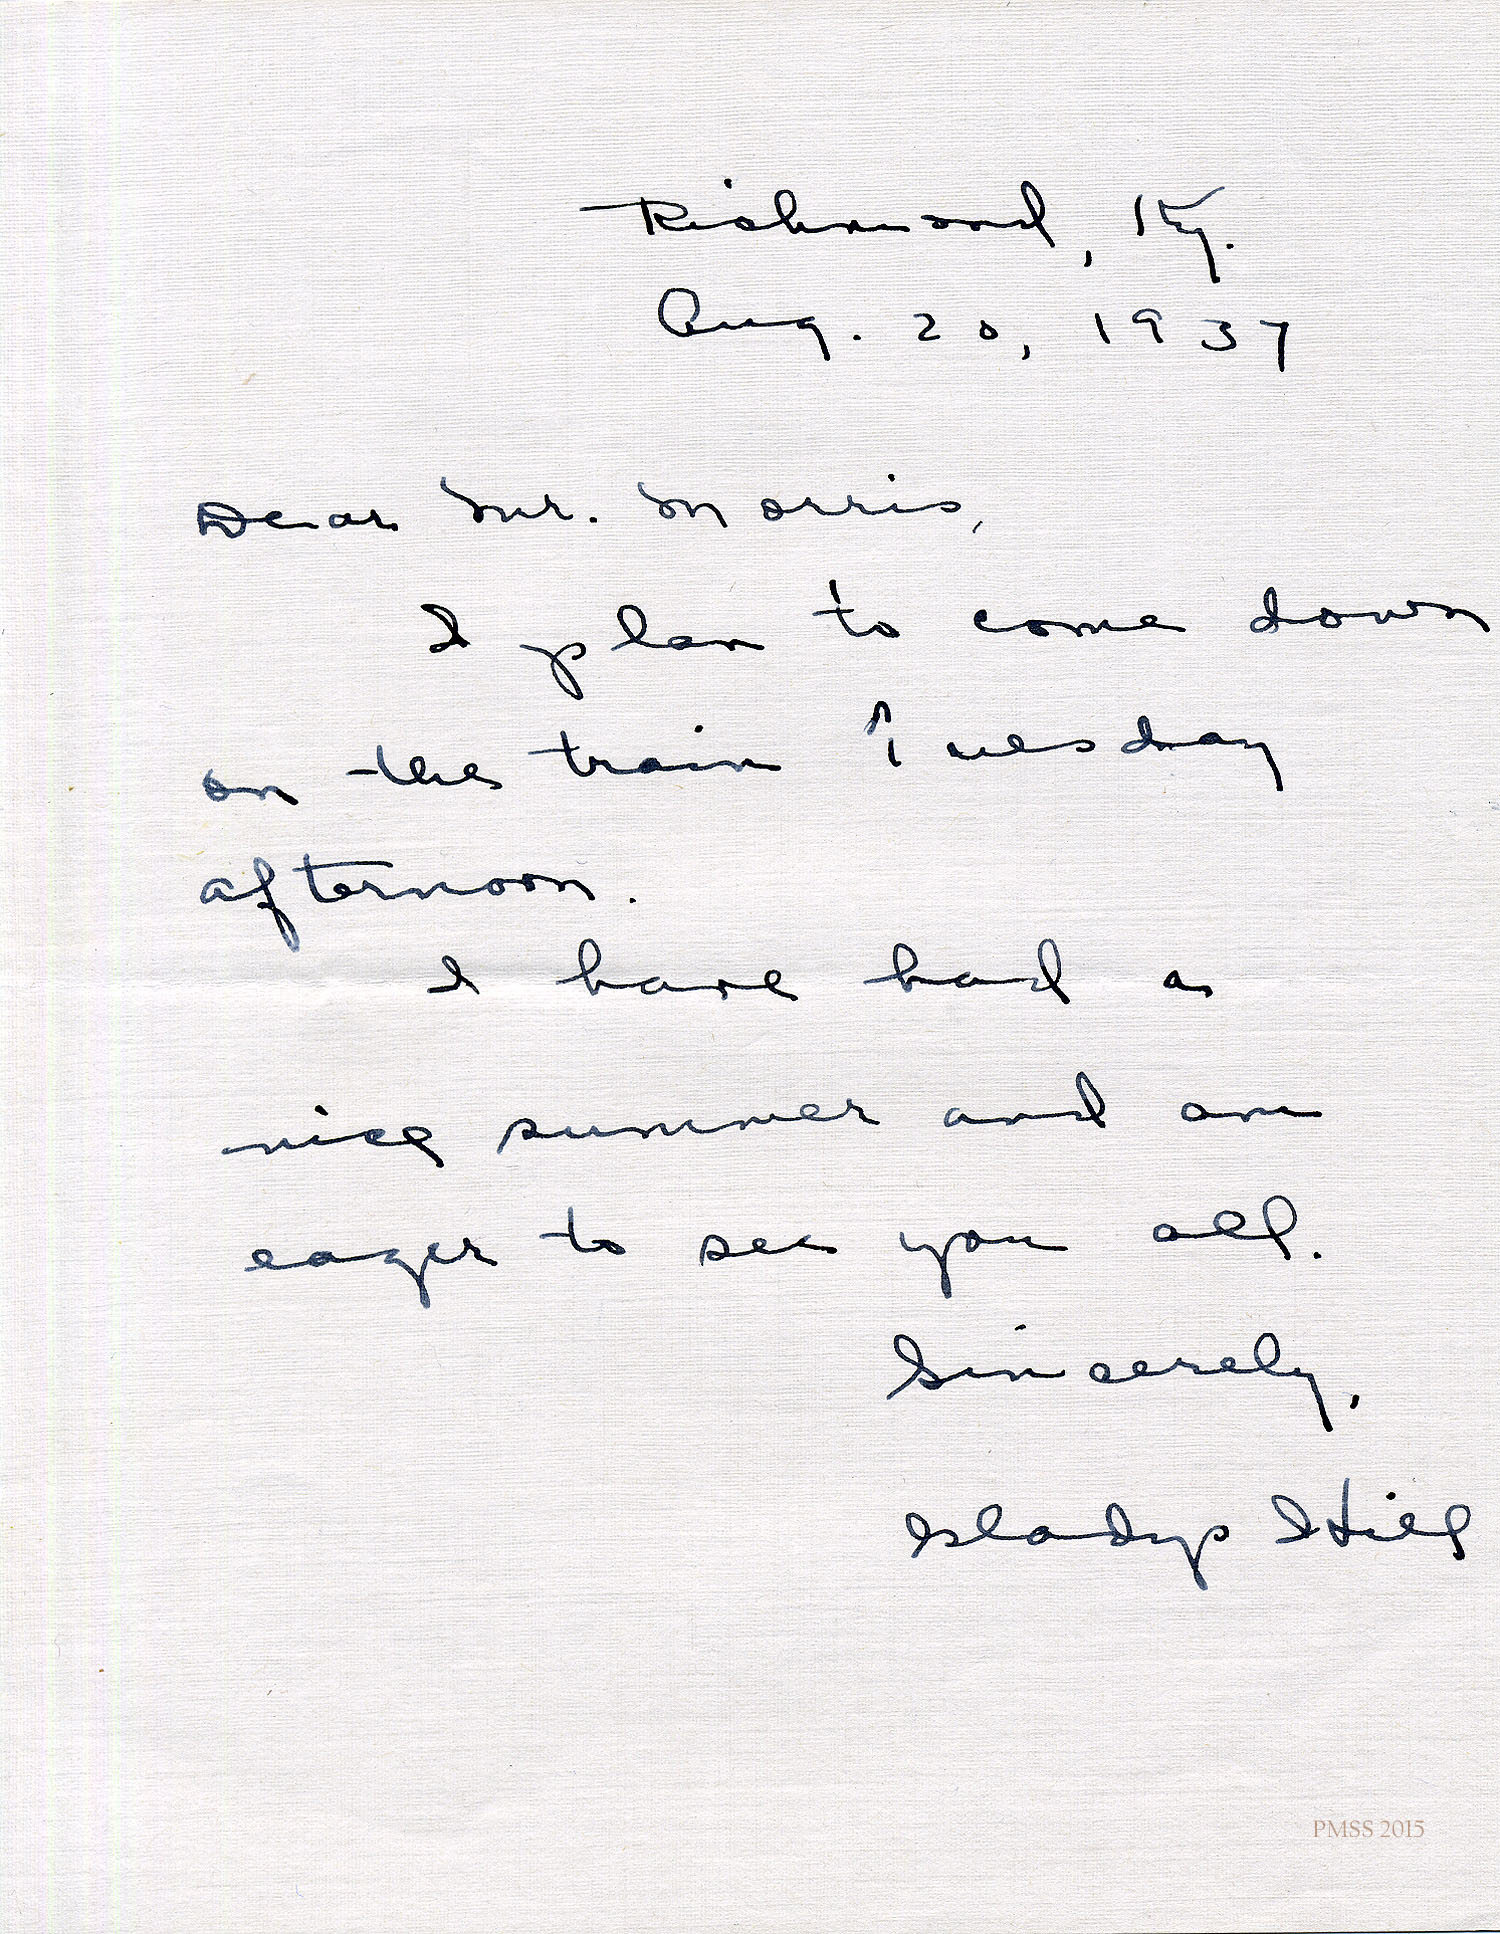 Richmond, Ky.
Aug. 20, 1937
Dear Mr. Morris,
I plan to come down
on the train Tuesday
afternoon.
I have had a
nice summer and am
eager to see you all.
Sincerely,
Gladys Hill
PMSS 2015